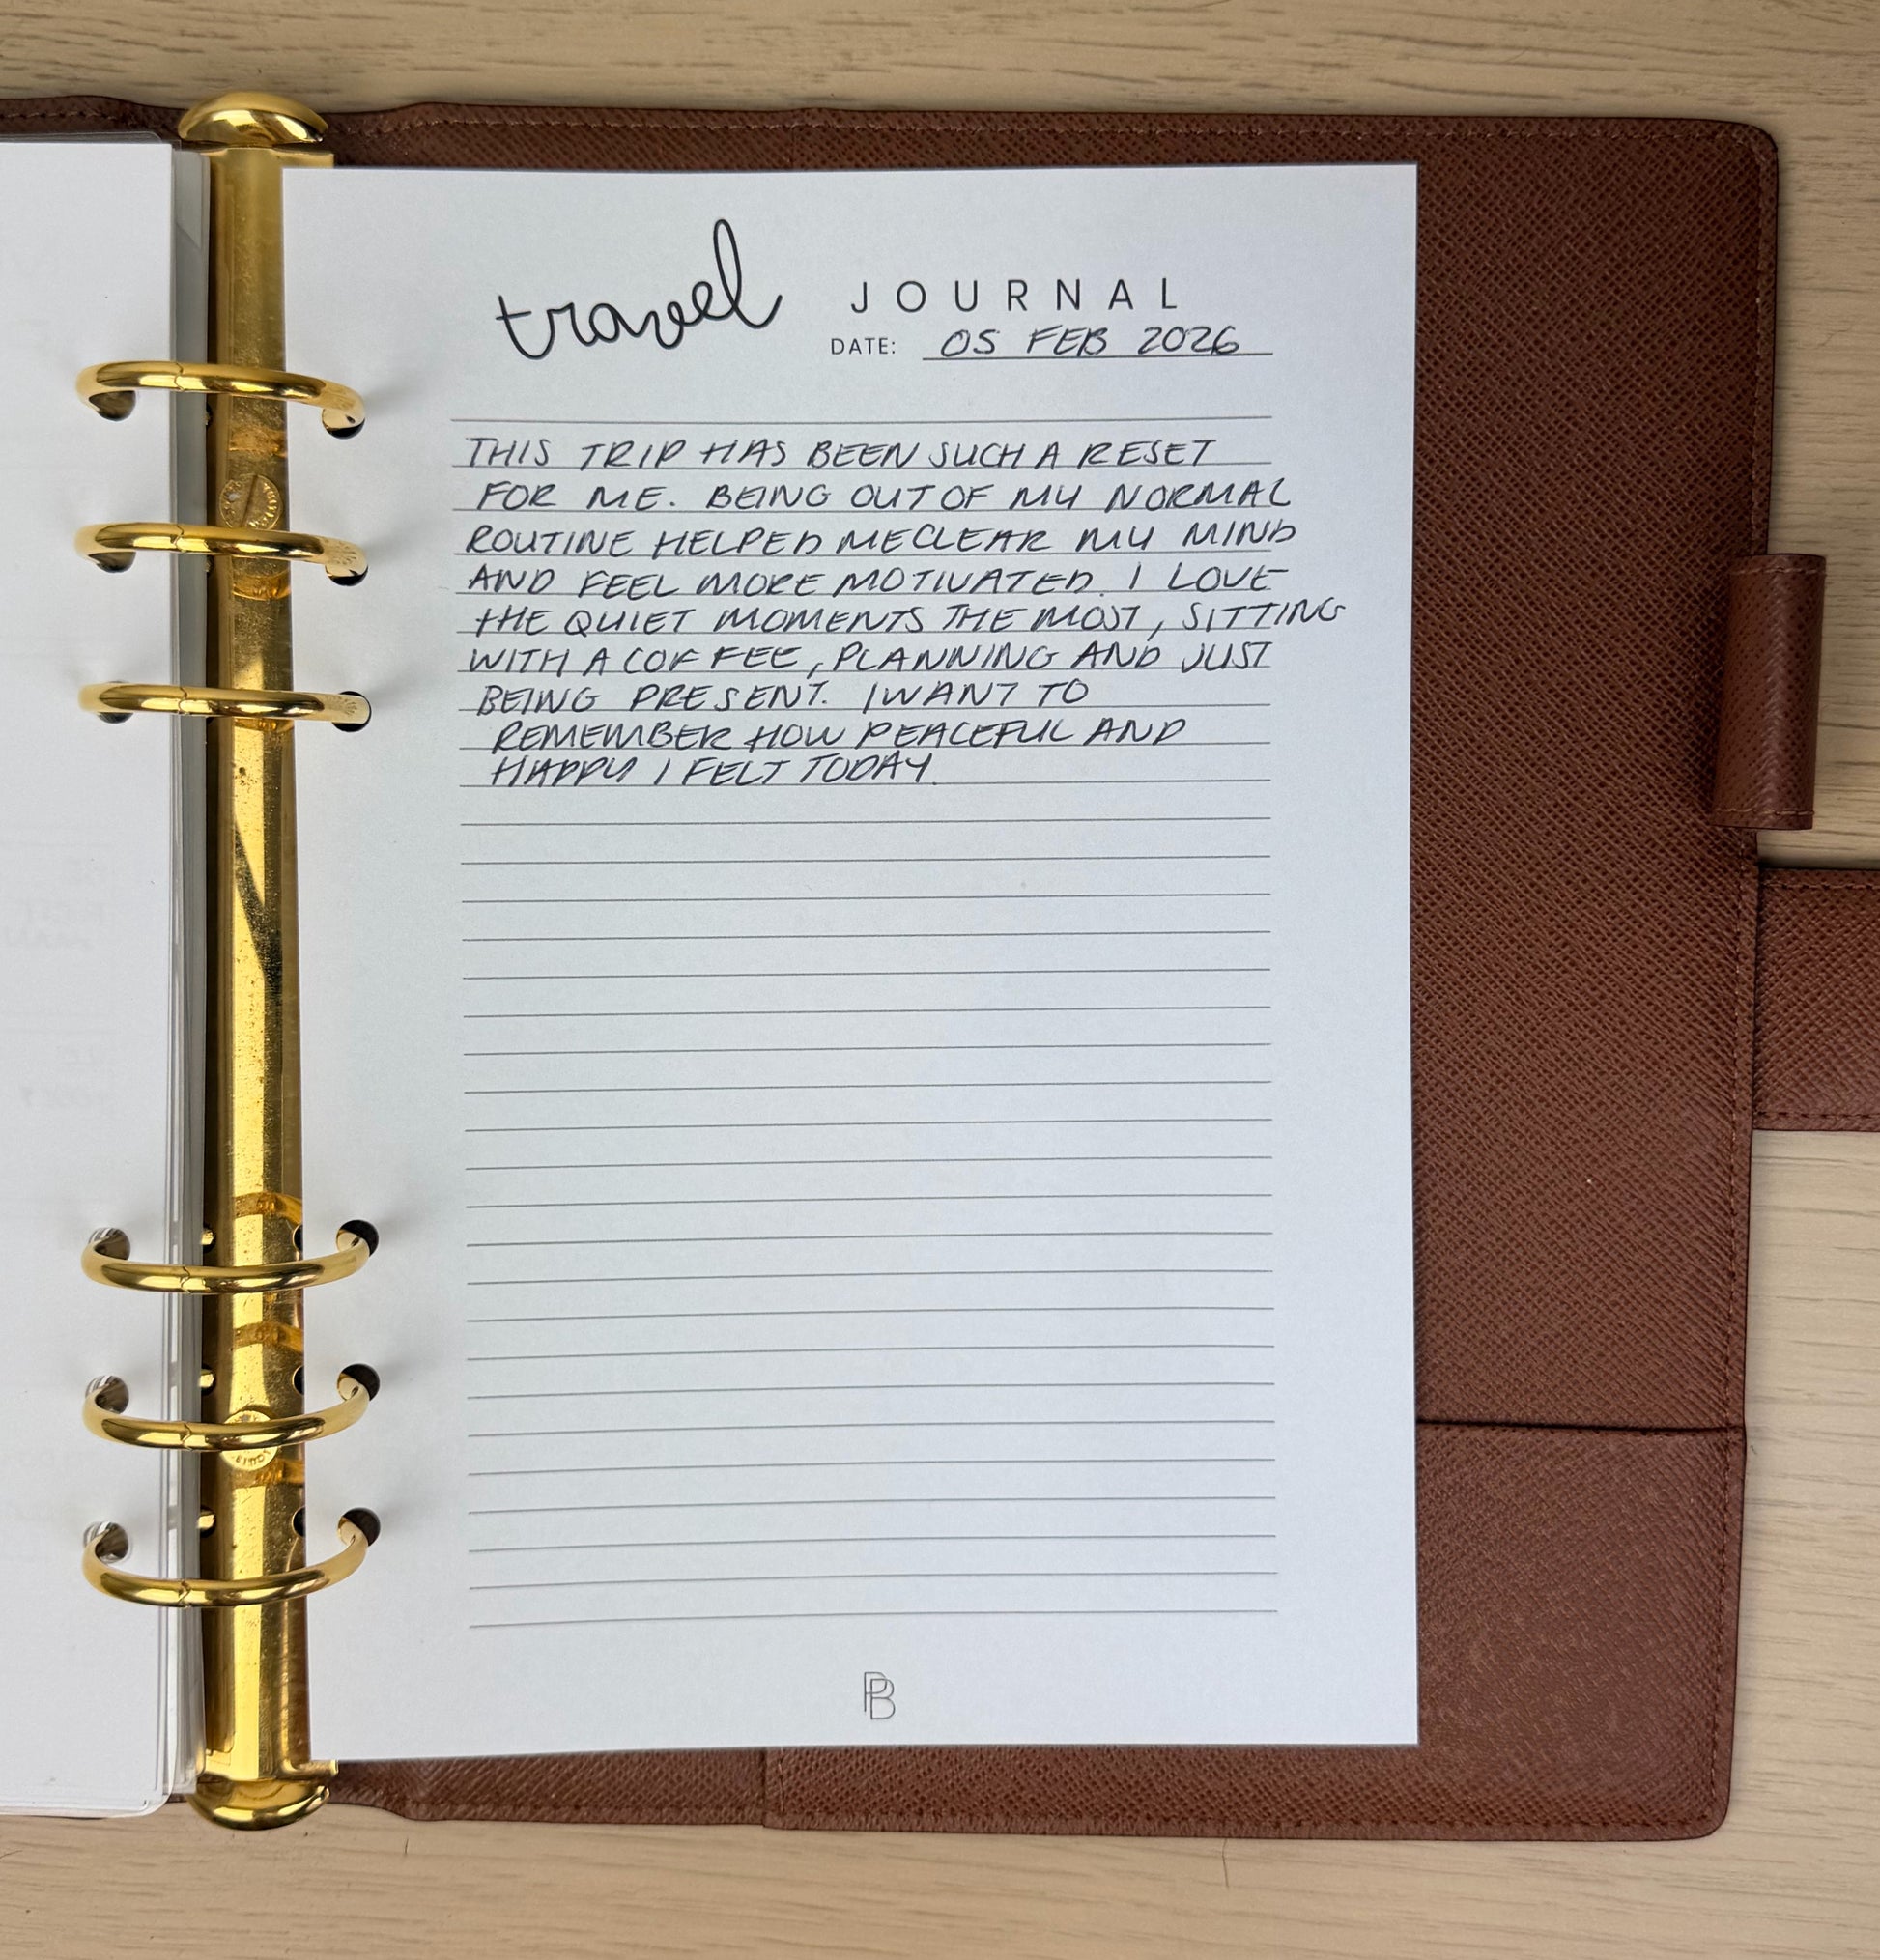 travel JOURNAL
DATE: 05 FEB 2026
THIS TRIP HAS BEEN SUCH A RESET
FOR ME. BEING OUT OF MY NORMAL
ROUTINE HELPED ME CLEAR MY MIND
AND FEEL MORE MOTIVATED. I LOVE
THE QUIET MOMENTS THE MOST, SITTING
WITH A COFFEE, PLANNING AND JUST
BEING PRESENT. I WANT TO
REMEMBER HOW PEACEFUL AND
HAPPY I FELT TODAY.
PB